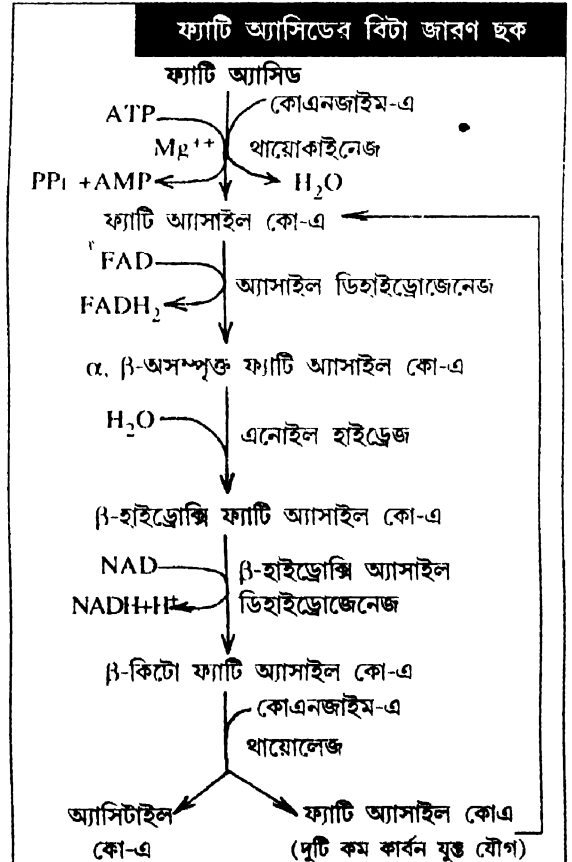 ফ্যাটি অ্যাসিডের বিটা জারণ ছক
ফ্যাটি অ্যাসিড
ATP কোএনজাইম-এ
Mg⁺⁺ থায়োকাইনেজ
PPi +AMP H₂O
ফ্যাটি অ্যাসাইল কো-এ
FAD
অ্যাসাইল ডিহাইড্রোজেনেজ
FADH₂
α, β-অসম্পৃক্ত ফ্যাটি অ্যাসাইল কো-এ
H₂O
এনোইল হাইড্রেজ
β-হাইড্রোক্সি ফ্যাটি অ্যাসাইল কো-এ
NAD β-হাইড্রোক্সি অ্যাসাইল
NADH+H⁺ ডিহাইড্রোজেনেজ
β-কিটো ফ্যাটি অ্যাসাইল কো-এ
কোএনজাইম-এ
থায়োলেজ
অ্যাসিটাইল ফ্যাটি অ্যাসাইল কোএ
কো-এ (দুটি কম কার্বন যুক্ত যৌগ)